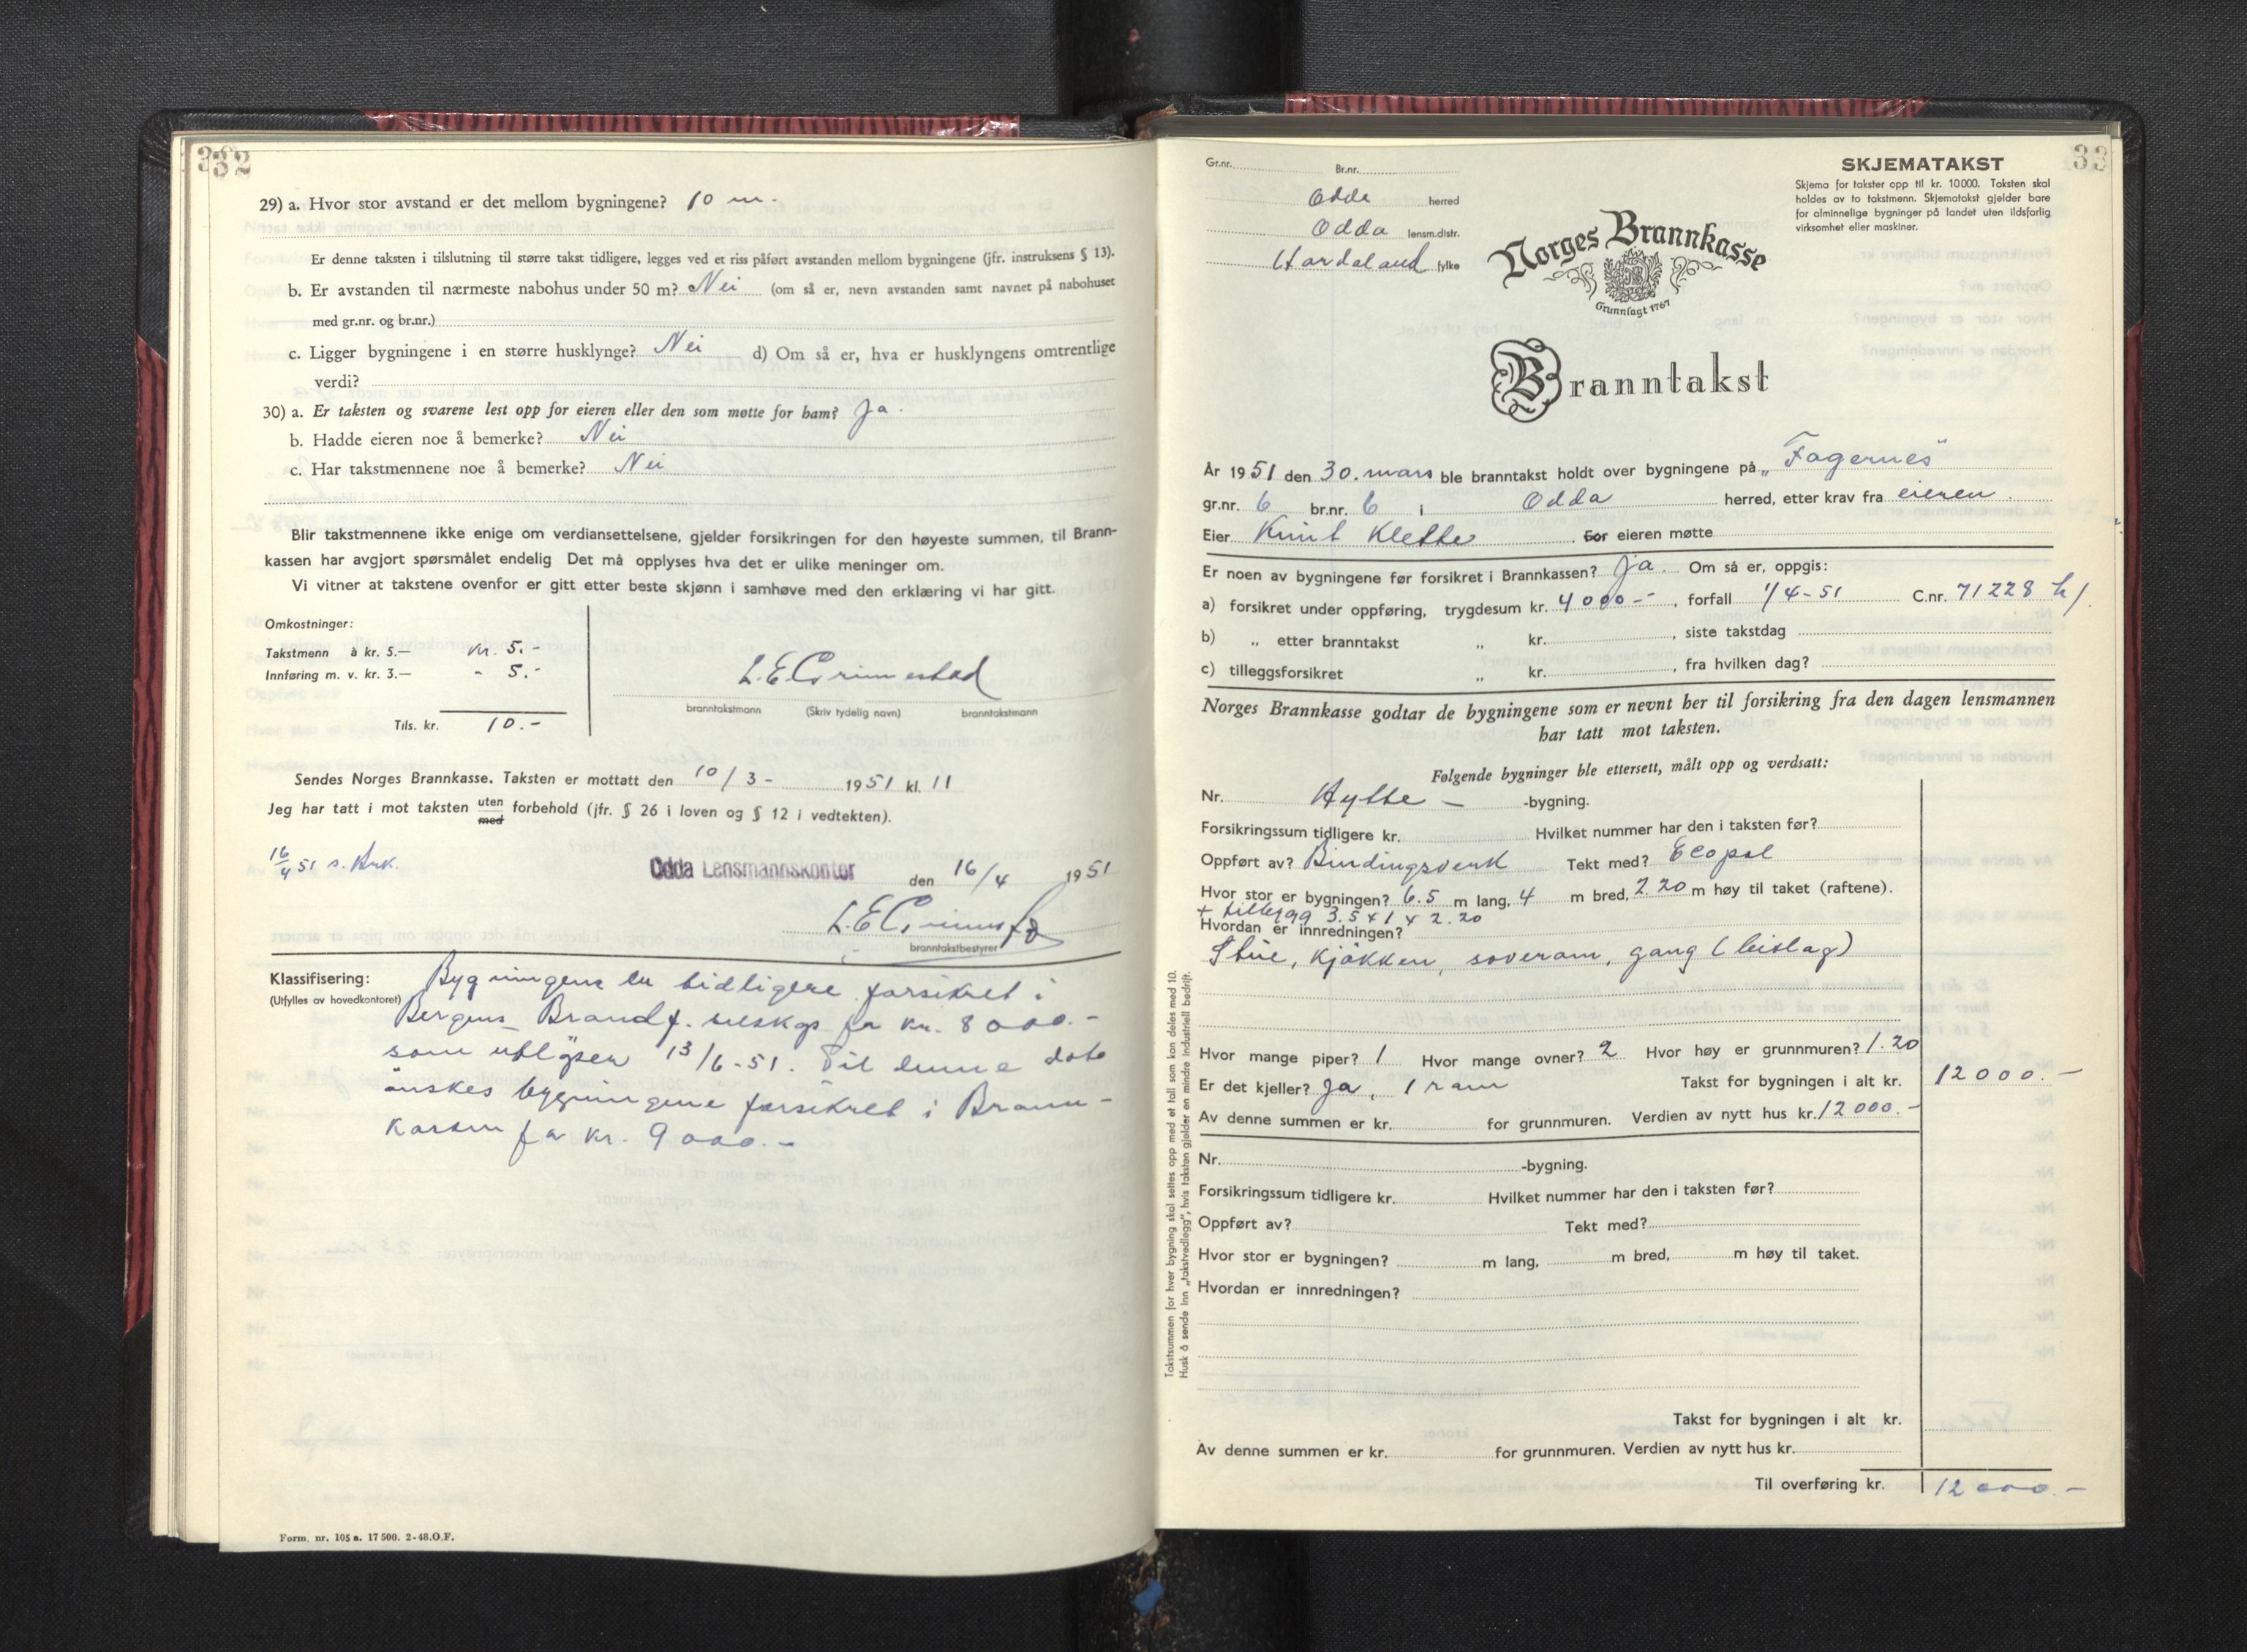 32
29) a. Hvor stor avstand er det mellom bygningene? 10 m.
Er denne taksten i tilslutning til større takst tidligere, legges ved et riss påført avstanden mellom bygningene (jfr. instruksens § 13).
b. Er avstanden til nærmeste nabohus under 50 m? Nei (om så er, nevn avstanden samt navnet på nabohuset
med gr.nr. og br.nr.)
c. Ligger bygningene i en større husklynge? Nei d) Om så er, hva er husklyngens omtrentlige
verdi?
30) a. Er taksten og svarene lest opp for eieren eller den som møtte for ham? Ja.
b. Hadde eieren noe å bemerke? Nei
c. Har takstmennene noe å bemerke? Nei
Blir takstmennene ikke enige om verdiansettelsene, gjelder forsikringen for den høyeste summen, til Brann-
kassen har avgjort spørsmålet endelig Det må opplyses hva det er ulike meninger om.
Vi vitner at takstene ovenfor er gitt etter beste skjønn i samhøve med den erklæring vi har gitt.
Omkostninger:
Takstmenn à kr. 5.— kr. 5.-
Innføring m. v. kr. 3.— - 5.-
Tils. kr. 10.-
L.E. Grimestad
branntakstmann (Skriv tydelig navn) branntakstmann
Sendes Norges Brannkasse. Taksten er mottatt den 10/3- 1951 kl. 11
Jeg har tatt i mot taksten uten med forbehold (jfr. § 26 i loven og § 12 i vedtekten).
16/4 51 s.
Odda Lensmannskontor den 16/4 1951
L.E. Grimestad
branntakstbestyrer
Klassifisering:
(Utfylles av hovedkontoret)
Bygningene er tidligere forsikret i
Bergens Brandf. selskap for kr. 8000.-
som utløper 13/6-51. Til denne dato
ønskes bygningene forsikret i Brann-
kassen for kr. 9000.-
Form. nr. 105 a. 17 500. 2-48.O.F.
33
Gr.nr. Br.nr.
Odda herred
Odda lensm.distr.
Hordaland fylke
SKJEMATAKST
Skjema for takster opp til kr. 10000. Taksten skal
holdes av to takstmenn. Skjematakst gjelder bare
for alminnelige bygninger på landet uten ildsfarlig
virksomhet eller maskiner.
Norges Brannkasse
Grunnlagt 1767
Branntakst
År 1951 den 30. mars ble branntakst holdt over bygningene på „Fagernes"
gr.nr. 6 br.nr. 6 i Odda herred, etter krav fra eieren.
Eier Knut Klette. For eieren møtte
Er noen av bygningene før forsikret i Brannkassen? Ja. Om så er, oppgis:
a) forsikret under oppføring, trygdesum kr. 4000.-, forfall 1/4-51 C.nr. 71228 h/.
b) „ etter branntakst „ kr. , siste takstdag
c) tilleggsforsikret „ kr. , fra hvilken dag?
Norges Brannkasse godtar de bygningene som er nevnt her til forsikring fra den dagen lensmannen
har tatt mot taksten.
Følgende bygninger ble ettersett, målt opp og verdsatt:
Nr. Hytte - -bygning.
Forsikringssum tidligere kr. Hvilket nummer har den i taksten før?
Oppført av? Bindingsverk Tekt med? Ecopal
Hvor stor er bygningen? 6.5 m lang, 4 m bred, 2.20 m høy til taket (raftene).
+ tillegg 3.5 x 1 x 2.20
Hvordan er innredningen?
Stue, kjøkken, soverom, gang (bislag)
Hvor mange piper? 1 Hvor mange ovner? 2 Hvor høy er grunnmuren? 1.20
Er det kjeller? Ja, 1 rom Takst for bygningen i alt kr. 12000.-
Av denne summen er kr. for grunnmuren. Verdien av nytt hus kr. 12000.-
Nr. -bygning.
Forsikringssum tidligere kr. Hvilket nummer har den i taksten før?
Oppført av? Tekt med?
Hvor stor er bygningen? m lang, m bred, m høy til taket.
Hvordan er innredningen?
Takst for bygningen i alt kr.
Av denne summen er kr. for grunnmuren. Verdien av nytt hus kr.
Til overføring kr. 12000.-
Takstsummen for hver bygning skal settes opp med et tall som kan deles med 10.
Husk å sende inn „takstvedlegg", hvis taksten gjelder en mindre industriell bedrift.